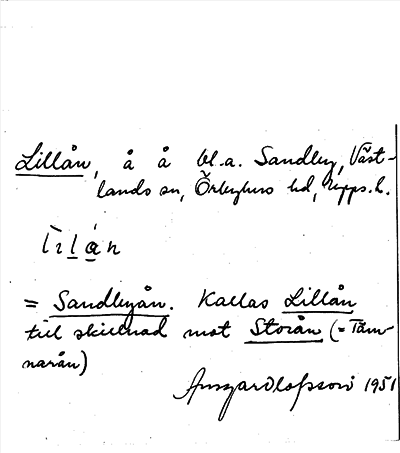 Lillån, å å bl.a. Sandby, Väst-
lands sn, Örbyhus hd, Upps.l.
lìlán
= Sandbyån. Kallas Lillån
till skillnad mot Storån (= Täm-
narån)
Ansgar Olofsson 1951